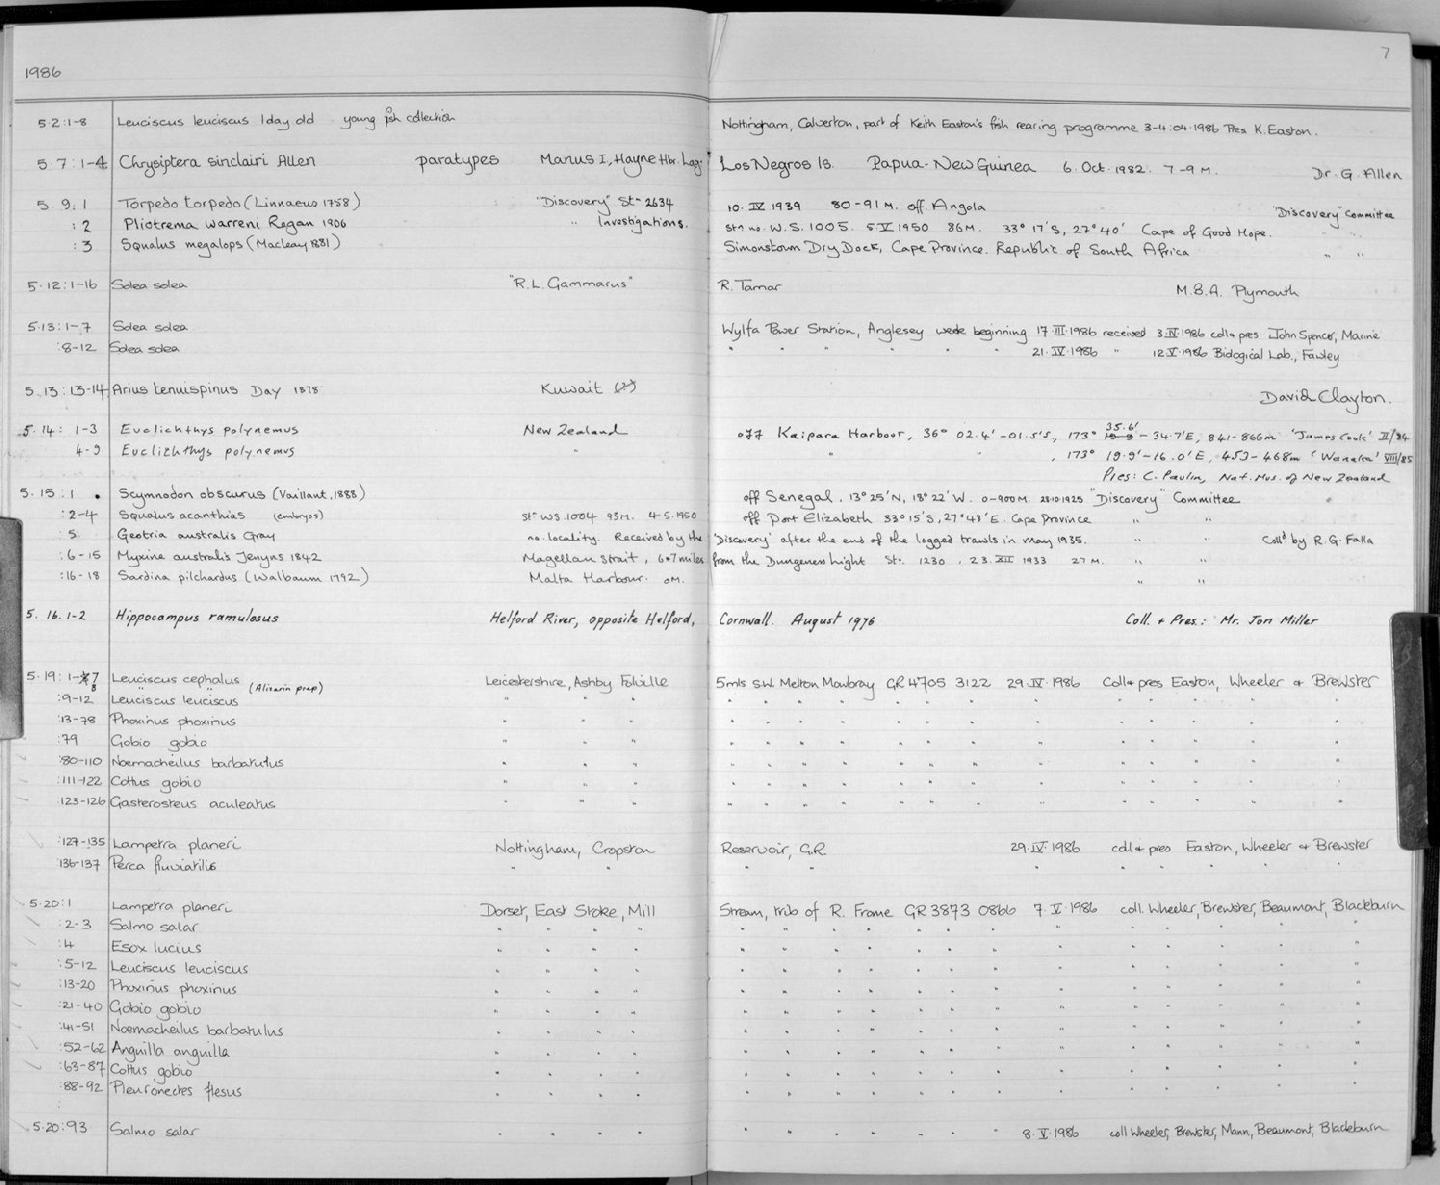 7
1986
5.2:1-8 Leuciscus leuciscus 1 day old young fish collection Nottingham, Calverton, part of Keith Easton's fish rearing programme 3-4:04.1986 Pres K. Easton.
5.7:1-4 Chrysiptera sinclairi Allen paratypes Manus I, Hayne Hbr. Lag. Los Negros Is. Papua-New Guinea 6. Oct. 1982. 7-9 M. Dr. G. Allen
5 9.1 Torpedo torpedo (Linnaeus 1758) "Discovery" Stn 2634 10.IV 1939 80-91 M. off Angola "Discovery" Committee
:2 Pliotrema warreni Regan 1906 " Investigations. stn no. W.S. 1005. 5 V 1950 86M. 33° 17'S, 22° 40' Cape of Good Hope. " "
:3 Squalus megalops (Macleay 1881) Simonstown Dry Dock, Cape Province. Republic of South Africa " "
5.12:1-16 Solea solea "R.L. Gammarus" R. Tamar M.B.A. Plymouth
5.13:1-7 Solea solea Wylfa Power Station, Anglesey week beginning 17.III.1986 received 3.IV.1986 coll + pres John Spencer, Marine
:8-12 Solea solea " " " " " " 21.IV.1986 " 12.V.1986 Biological Lab., Fawley
5.13:13-14 Arius tenuispinus Day 1878 Kuwait David Clayton.
5.14: 1-3 Euclichthys polynemus New Zealand off Kaipara Harbour, 36° 02.4'-01.5'S, 173° 35.6' - 34.7'E, 841-866m 'James Cook' II/84
4-9 Euclichthys polynemus " " , 173° 19.9'-16.0'E, 453-468m 'Wanaka' VIII/85
Pres: C. Paulin, Nat. Mus. of New Zealand
5.15:1 . Scymnodon obscurus (Vaillant, 1888) off Senegal, 13° 25'N, 18° 22'W. 0-900M. 28.10.1925 "Discovery" Committee "
:2-4 Squalus acanthias (embryos) Stn WS.1004 93M. 4-5.1950 off Port Elizabeth 33° 15'S, 27° 41'E. Cape Province " "
:5 Geotria australis Gray no. locality. Received by the 'Discovery' after the end of the logged trawls in May 1935. " " Colld by R.G. Falla
:6-15 Myxine australis Jenyns 1842 Magellan Strait, 6.7 miles from the Dungeness Light Stn. 1230, 23.XII 1933 27 M. " "
:16-18 Sardina pilchardus (Walbaum 1792) Malta Harbour. 0M. " "
5. 16. 1-2 Hippocampus ramulosus Helford River, opposite Helford, Cornwall. August 1976 Coll. + Pres.: Mr. Jon Miller
5.19:1-7 Leuciscus cephalus Leicestershire, Ashby Folville 5mls SW Melton Mowbray GR 4705 3122 29.IV.1986 Coll + pres Easton, Wheeler & Brewster
8 " " (Alizarin prep)
:9-12 Leuciscus leuciscus " " " " " " " " " " " " " " " "
:13-78 Phoxinus phoxinus " " " " " " " " " " " " " " " "
:79 Gobio gobio " " " " " " " " " " " " " " " "
:80-110 Noemacheilus barbatulus " " " " " " " " " " " " " " " "
:111-122 Cottus gobio " " " " " " " " " " " " " " " "
:123-126 Gasterosteus aculeatus " " " " " " " " " " " " " " " "
:127-135 Lampetra planeri Nottingham, Cropston Reservoir, GR 29.IV.1986 coll + pres Easton, Wheeler & Brewster
136-137 Perca fluviatilis " " " " " " " " " " "
5.20:1 Lampetra planeri Dorset, East Stoke, Mill Stream, trib of R. Frome GR 3873 0866 7.V.1986 coll. Wheeler, Brewster, Beaumont, Blackburn
:2-3 Salmo salar " " " " " " " " " " " " " " " "
:4 Esox lucius " " " " " " " " " " " " " " " "
:5-12 Leuciscus leuciscus " " " " " " " " " " " " " " " "
:13-20 Phoxinus phoxinus " " " " " " " " " " " " " " " "
:21-40 Gobio gobio " " " " " " " " " " " " " " " "
:41-51 Noemacheilus barbatulus " " " " " " " " " " " " " " " "
:52-62 Anguilla anguilla " " " " " " " " " " " " " " " "
:63-87 Cottus gobio " " " " " " " " " " " " " " " "
:88-92 Pleuronectes flesus " " " " " " " " " " " " " " " "
5.20:93 Salmo salar " " " " " " " " " " " 8.V.1986 coll Wheeler, Brewster, Mann, Beaumont, Blackburn